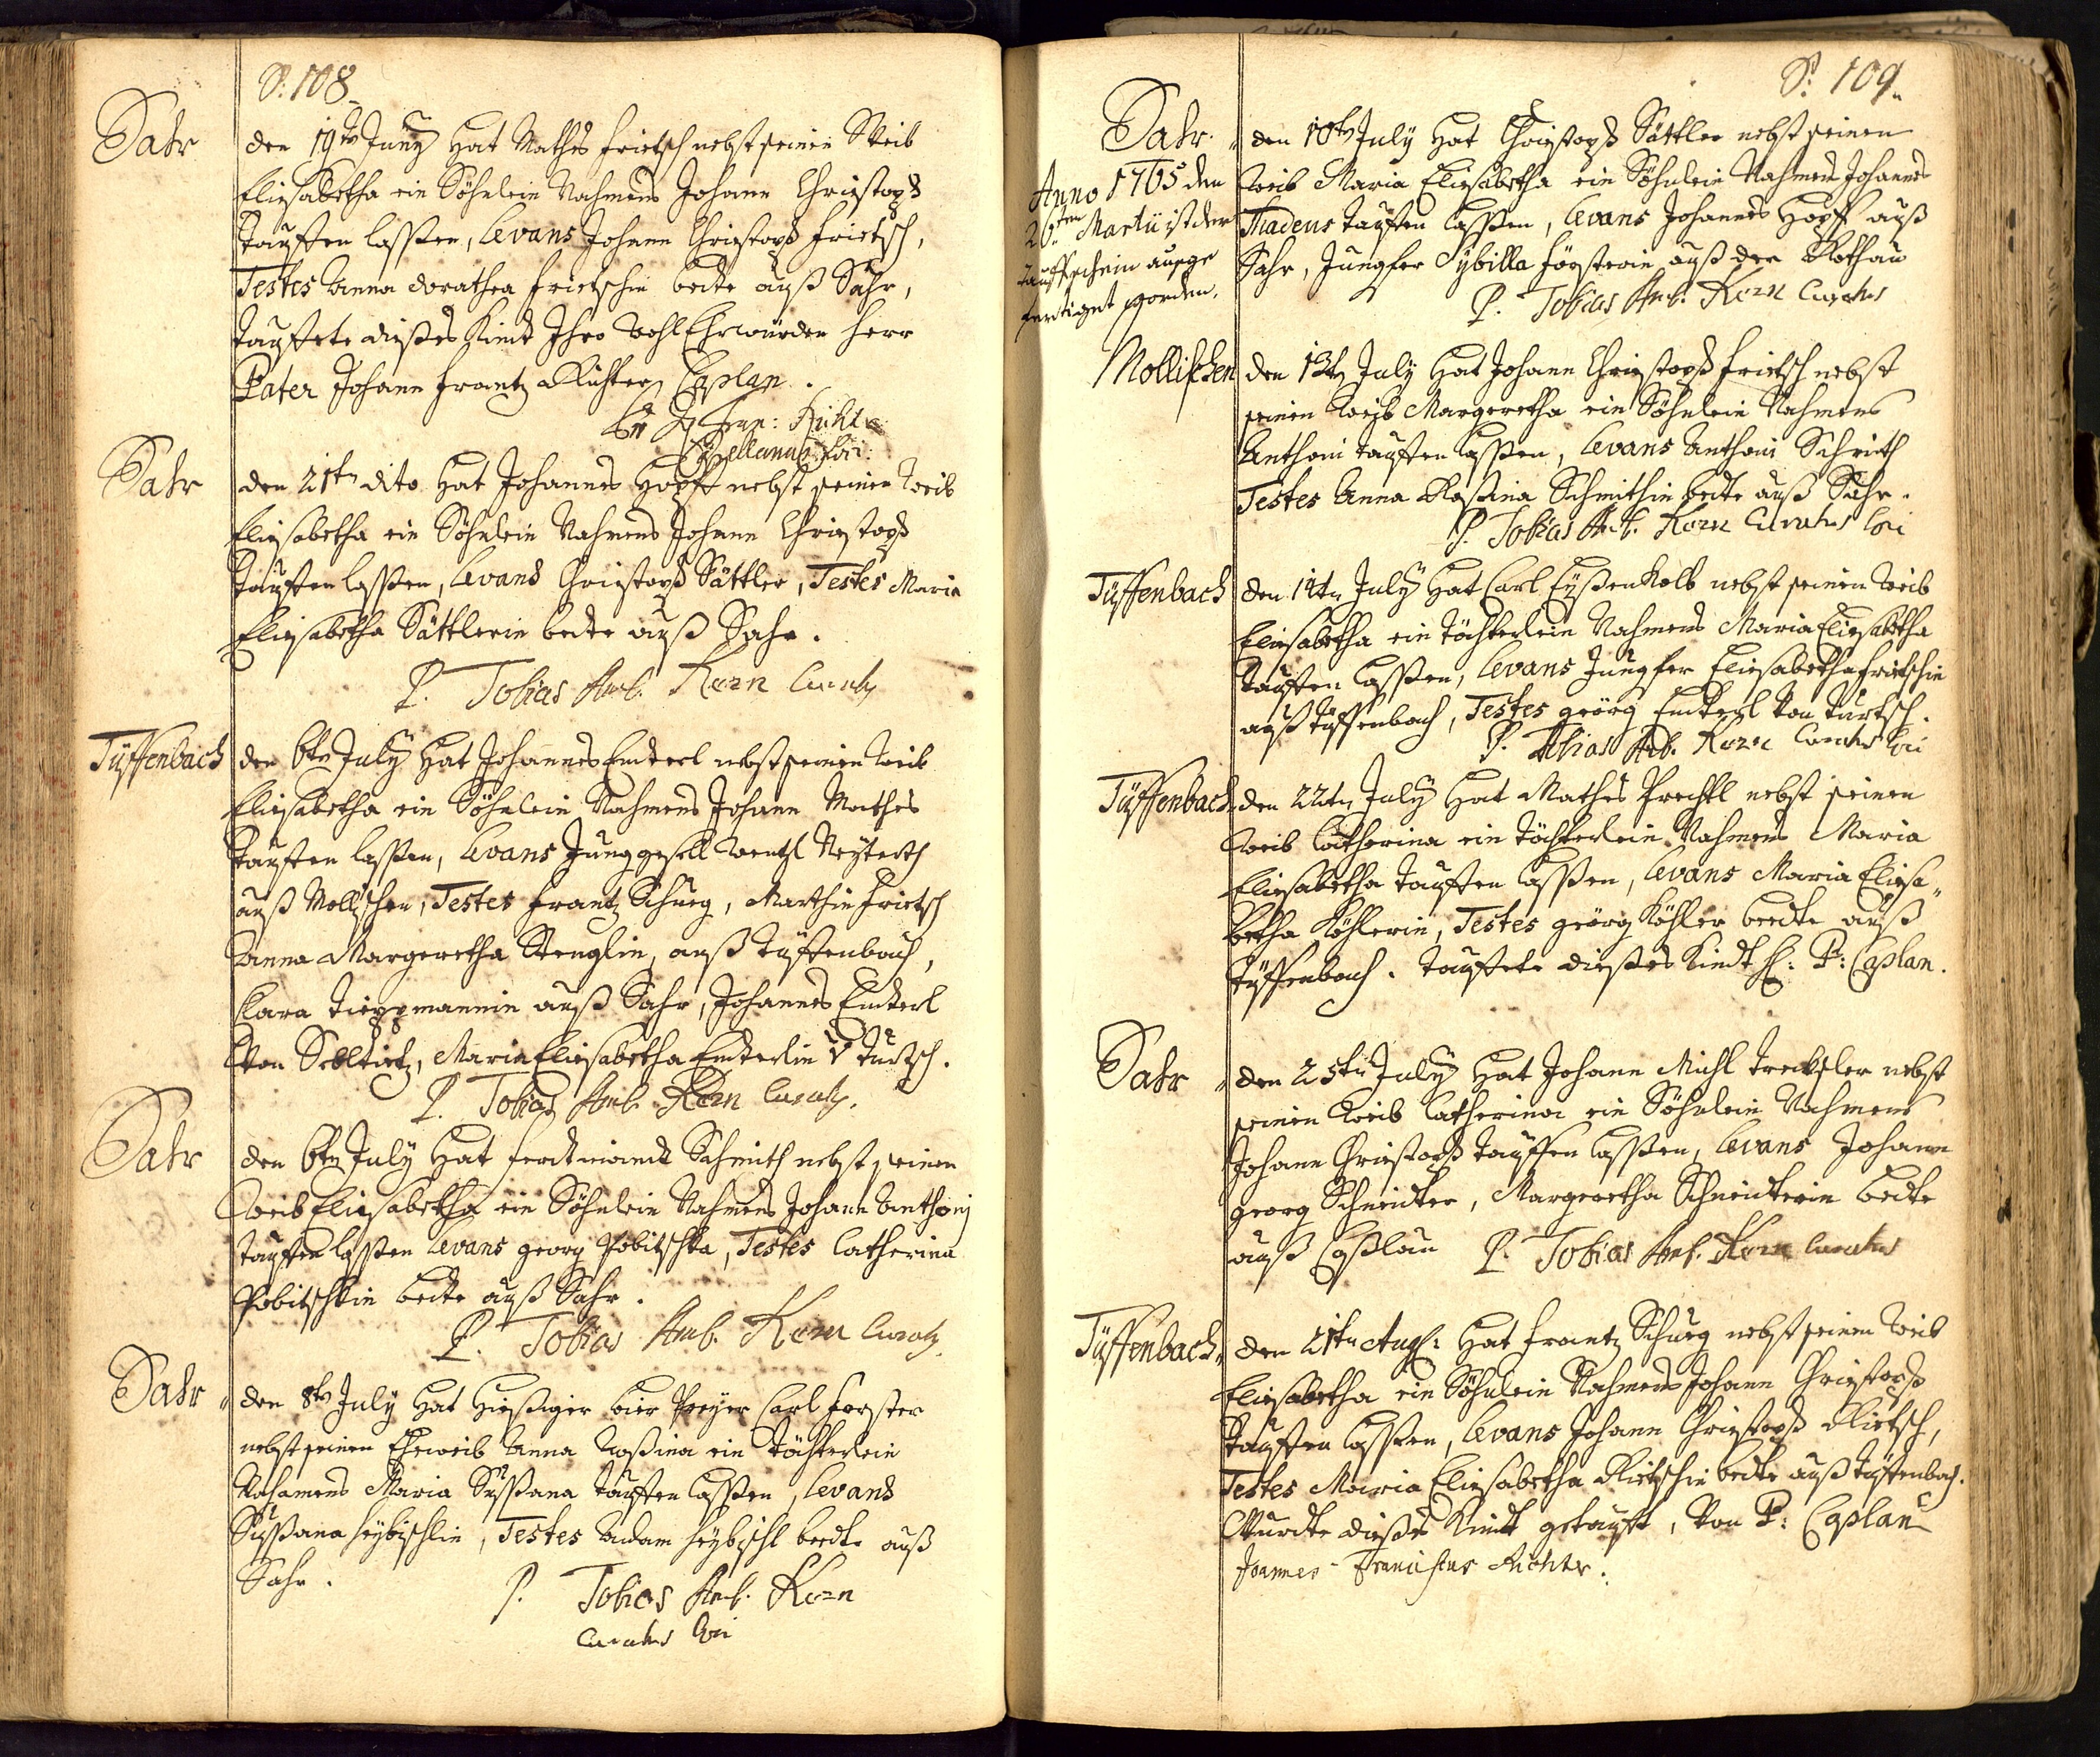 P: 108
Sahr
den 19ten Juny hat Mathes Frietsch nebst seinen Weib
Eliesabetha ein Söhnlein Nahmens Johann Christoph
tauffen lassen, Levans Johann Christoph Frietsch,
Testes Anna Dorathea Frietschin beite auß Sahr,
tauffete dießes Kindt Ihro Wohl Ehrwürden Herr
Pater Johann Frantz Richter, Caplan.
Richter
Capellanus loci
Sahr
den 21ten dito hat Johannes Hopff nebst seinen Weib
Eliesabetha ein Söhnlein Nahmens Johann Christoph
tauffen lassen, Levans Christoph Sättler, Testes Maria
Eliesabetha Sättlerin beite auß Sahr.
P. Tobias Amb. Korn Curatus
Tüffenbach
den 6ten July hat Johannes Enderl nebst seinen Weib
Eliesabetha ein Söhnlein Nahmens Johann Mathes
tauffen lassen, Levans Junggesell Wentzl
auß Mollischen, Testes Frantz Schurg, Marthin Frietsch
Anna Margeretha Stenglin, auß Tüffenbach,
Clara Tiepmannin auß Sahr, Johannes Enderl
Von, Maria Eliesabetha Enderlin V Turtsch.
P. Tobias Amb. Korn Curatus.
Sahr
den 6ten July hat Ferdtinandt Schmith nebst seinen
Weib Eliesabetha ein Söhnlein Nahmens Johann Anthonj
tauffen lassen Levans Georg Pobitschka, Testes Catherina
Pobitschkin beite auß Sahr.
P. Tobias Amb. Korn Curatus
Sahr
den 8ten July hat hießiger bier Preyer Carl Forster
nebst seinen Eheweib Anna Roßina ein Töchterlein
Nahmens Maria Sussana tauffen lassen, Levans
Sussana Heybischlin, Testes Adam Heybischl beedte auß
Sahr.
P. Tobias Amb. Korn
Curatus loci
P: 109.
Sahr.
Anno 1765 den
26ten Martii ist der
tauffschein ausge
fertiget worden.
den 10ten July hat Christoph Sättler nebst seinen
Weib Maria Eliesabetha ein Söhnlein Nahmens Johannes
Thadeus tauffen lassen, Levans Johannes Hopff auß
Sahr, Jungfer Sybilla Försterin auß der Rothau
P. Tobias Amb. Korn Curatus
Mollischen
den 13ten July hat Johann Christoph Frietsch nebst
seinen Weib Margeretha ein Söhnlein Nahmens
Anthoni tauffen lassen, Levans Anthoni Schmith
Testes Anna Roßina Schmithin beite auß Sahr.
P. Tobias Amb. Korn Curatus loci
Tüffenbach
den 14ten July hat Carl Eyßenkolb nebst seinen Weib
Eliesabetha ein Töchterlein Nahmens Maria Eliesabetha
tauffen lassen, Levans Jungfer Eliesabetha Frietschin
auß Tüffenbach, Testes Geörg Enderl Von Turtsch.
P. Tobias Amb. Korn Curatus loci
Tüffenbach
den 22ten July hat Mathes Prechtl nebst seinen
Weib Catherina ein Töchterlein Nahmens Maria
Eliesabetha tauffen lassen, Levans Maria Eliesa„
betha Köhlerin, Testes Geörg Köhler beedte auß
Tüffenbach. tauffete dießes Kindt H: P: Caplan.
Sahr
den 25ten July hat Johann Michl Trechsler nebst
seinen Weib Catherina ein Söhnlein Nahmens
Johann Christoph tauffen lassen, Levans Johann
Georg Schneidter, Margeretha Schneidterin bedte
auß P. Tobias Amb. Korn Curatus
Tüffenbach
den 21ten Aug: hat Frantz Schurg nebst seinen Weib
Eliesabetha ein Söhnlein Nahmens Johann Christoph
tauffen lassen, Levans Johann Christoph Rietsch,
Testes Maria Eliesabetha Rietschin bedte auß Tüffenbach.
Wurdte dießes Kindt getaufft, Von P: Caplan
Joannes Franciscus Richter.